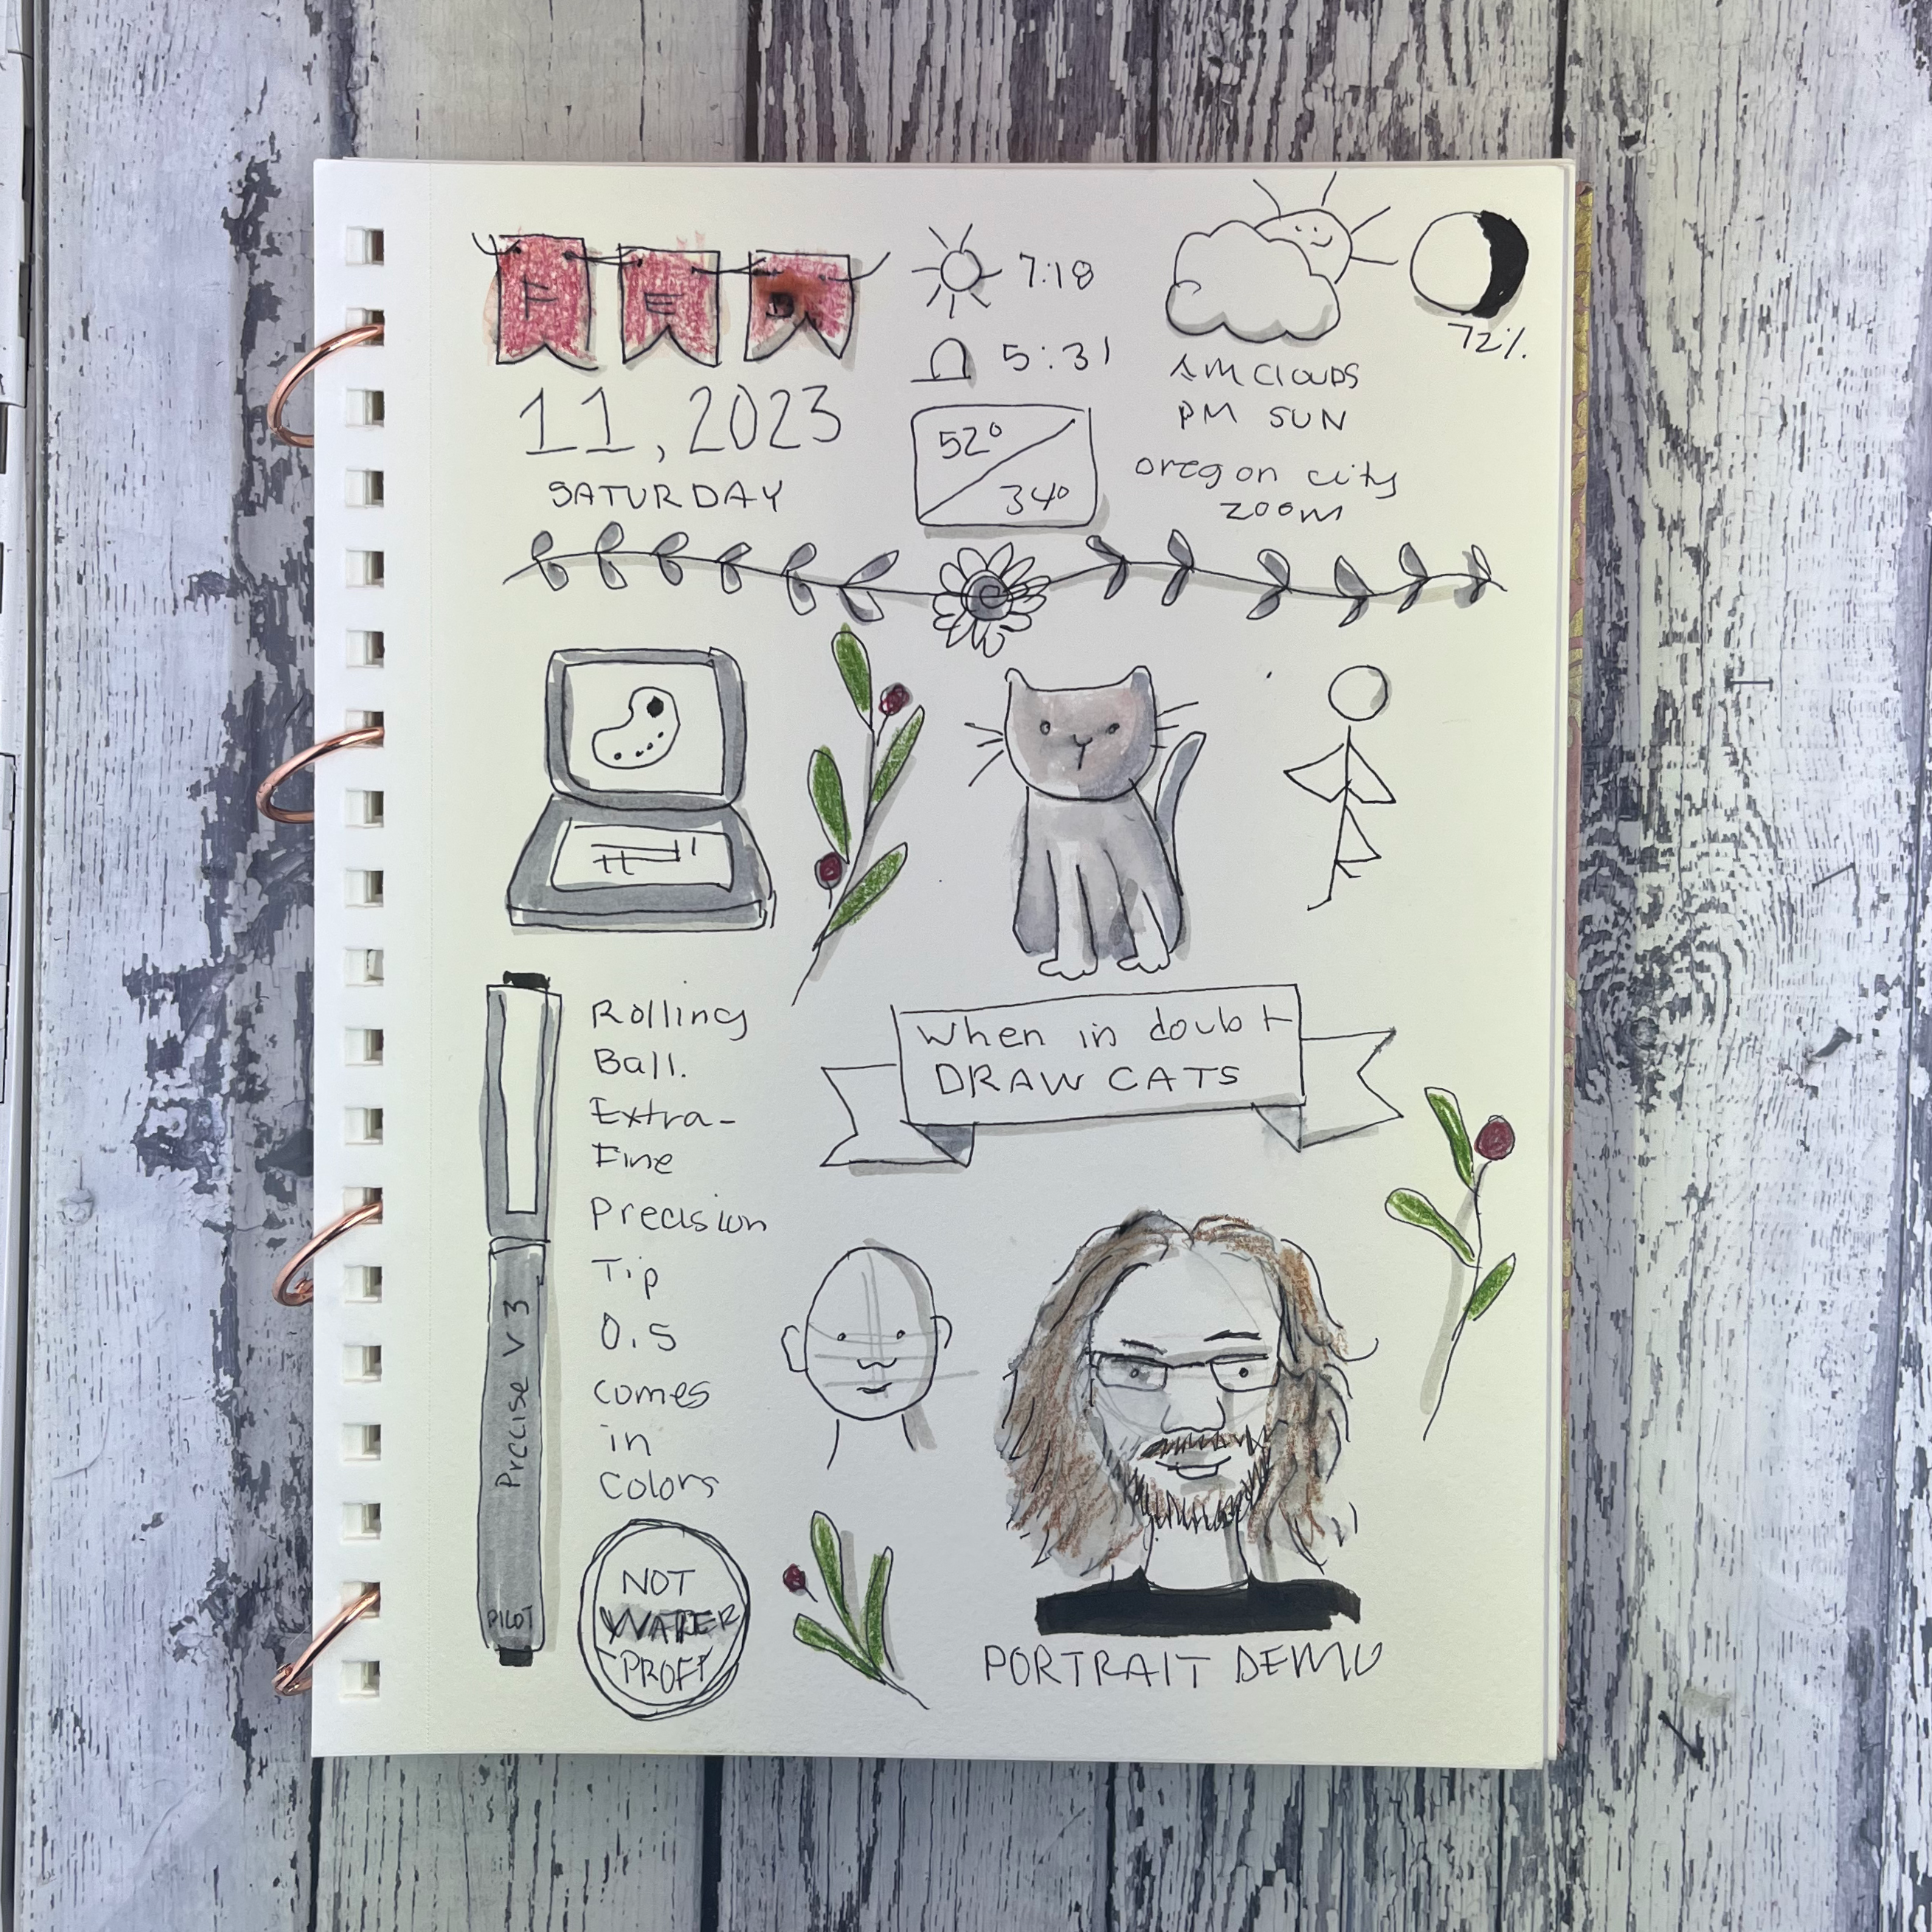 FEB
11, 2023
SATURDAY
7:18
5:31
52°
34°
AM CLOUDS
PM SUN
oregon city
zoom
72%
Rolling
Ball.
Extra-
Fine
Precision
Tip
0.5
comes
in
Colors
Precise V 3
PILOT
NOT
WATER
PROFF
When in doubt
DRAW CATS
PORTRAIT DEMO